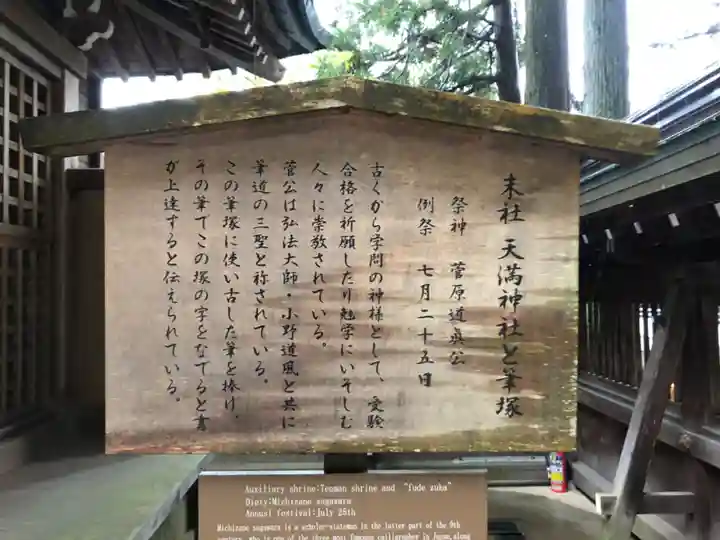 末社 天満神社と筆塚
祭神 菅原道眞公
例祭 七月二十五日
古くから学問の神様として、受験
合格を祈願したり勉学にいそしむ
人々に崇敬されている。
菅公は弘法大師・小野道風と共に
筆道の三聖と称されている。
この筆塚に使い古した筆を捧げ、
その筆でこの塚の字をなでると書
が上達すると伝えられている。
Auxiliary shrine:Tenman shrine and "fude zuka"
Diety:Michizane sugawara
Annual festival:July 25th
Michizane sugawara is a scholar-statesman in the latter part of the 9th
century, who is one of the three most famous calligrapher in Japan, along